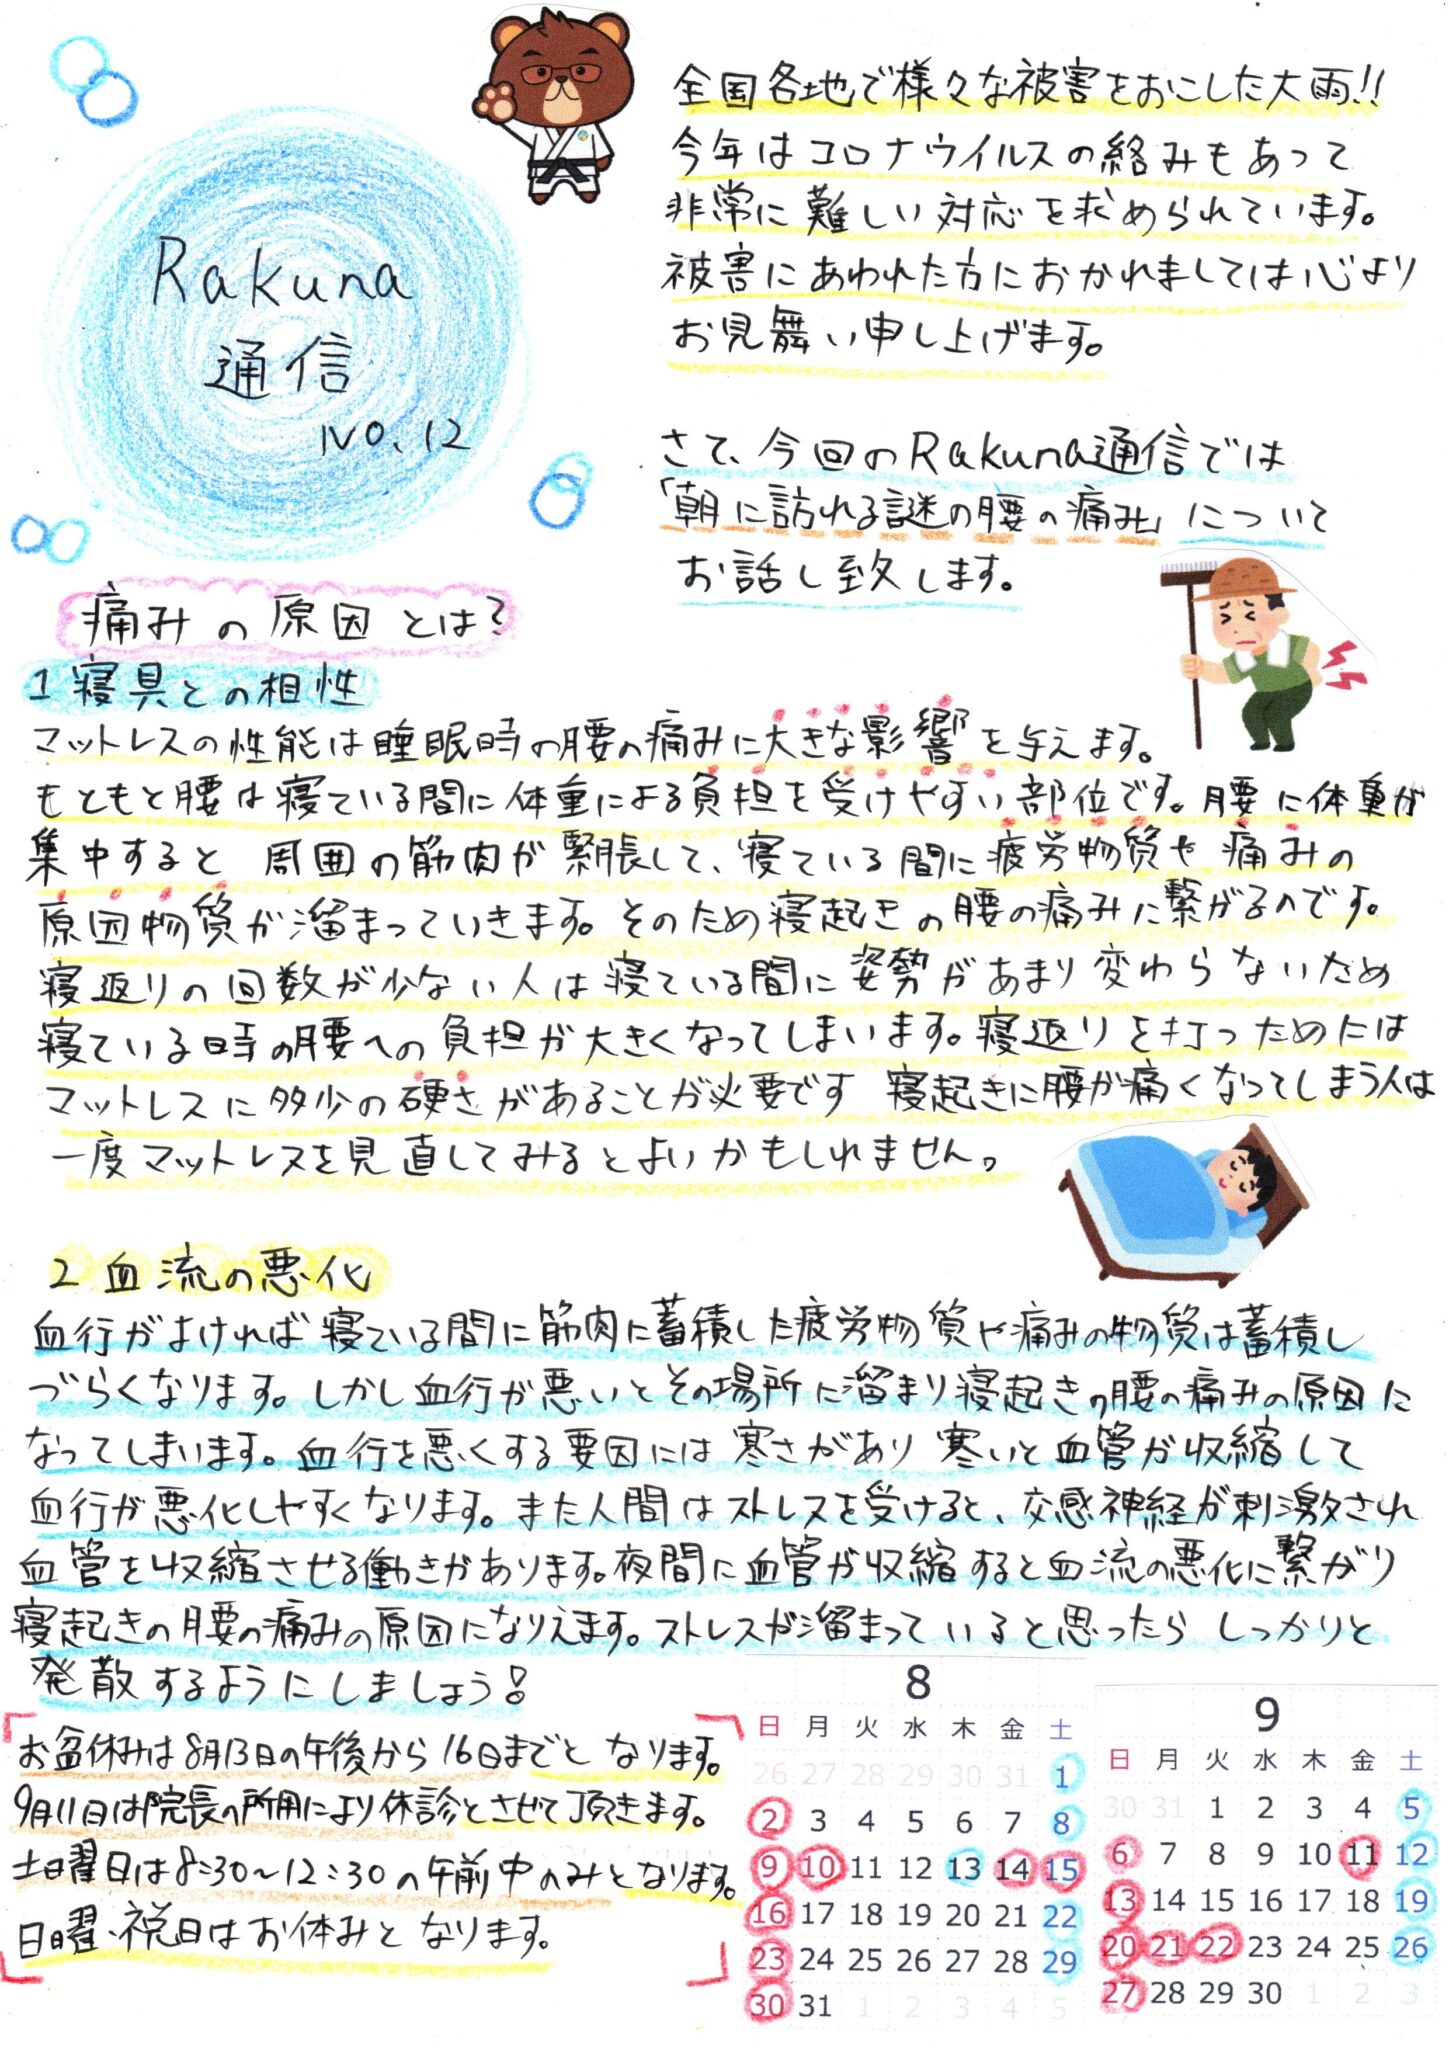 Rakuna
通信
NO.12
全国各地で様々な被害をおこした大雨!!
今年はコロナウイルスの絡みもあって
非常に難しい対応を求められています。
被害にあわれた方におかれましては心より
お見舞い申し上げます。
さて、今回のRakuna通信では
「朝に訪れる謎の腰の痛み」について
お話し致します。
痛みの原因とは?
1 寝具との相性
マットレスの性能は睡眠時の腰の痛みに大きな影響を与えます。
もともと腰は寝ている間に体重による負担を受けやすい部位です。腰に体重が
集中すると周囲の筋肉が緊張して、寝ている間に疲労物質や痛みの
原因物質が溜まっていきます。そのため寝起きの腰の痛みに繋がるのです。
寝返りの回数が少ない人は寝ている間に姿勢があまり変わらないため
寝ている時の腰への負担が大きくなってしまいます。寝返りを打つためには
マットレスに多少の硬さがあることが必要です 寝起きに腰が痛くなってしまう人は
一度マットレスを見直してみるとよいかもしれません。
2 血流の悪化
血行がよければ寝ている間に筋肉に蓄積した疲労物質や痛みの物質は蓄積し
づらくなります。しかし血行が悪いとその場所に溜まり寝起きの腰の痛みの原因に
なってしまいます。血行を悪くする要因には寒さがあり寒いと血管が収縮して
血行が悪化しやすくなります。また人間はストレスを受けると、交感神経が刺激され
血管を収縮させる働きがあります。夜間に血管が収縮すると血流の悪化に繋がり
寝起きの腰の痛みの原因になりえます。ストレスが溜まっていると思ったらしっかりと
発散するようにしましょう!
お盆休みは8月13日の午後から16日までとなります。
9月11日は院長の所用により休診とさせて頂きます。
土曜日は8:30~12:30の午前中のみとなります。
日曜・祝日はお休みとなります。
8
日 月 火 水 木 金 土
26 27 28 29 30 31 1
2 3 4 5 6 7 8
9 10 11 12 13 14 15
16 17 18 19 20 21 22
23 24 25 26 27 28 29
30 31 1 2 3 4 5
9
日 月 火 水 木 金 土
30 31 1 2 3 4 5
6 7 8 9 10 11 12
13 14 15 16 17 18 19
20 21 22 23 24 25 26
27 28 29 30 1 2 3